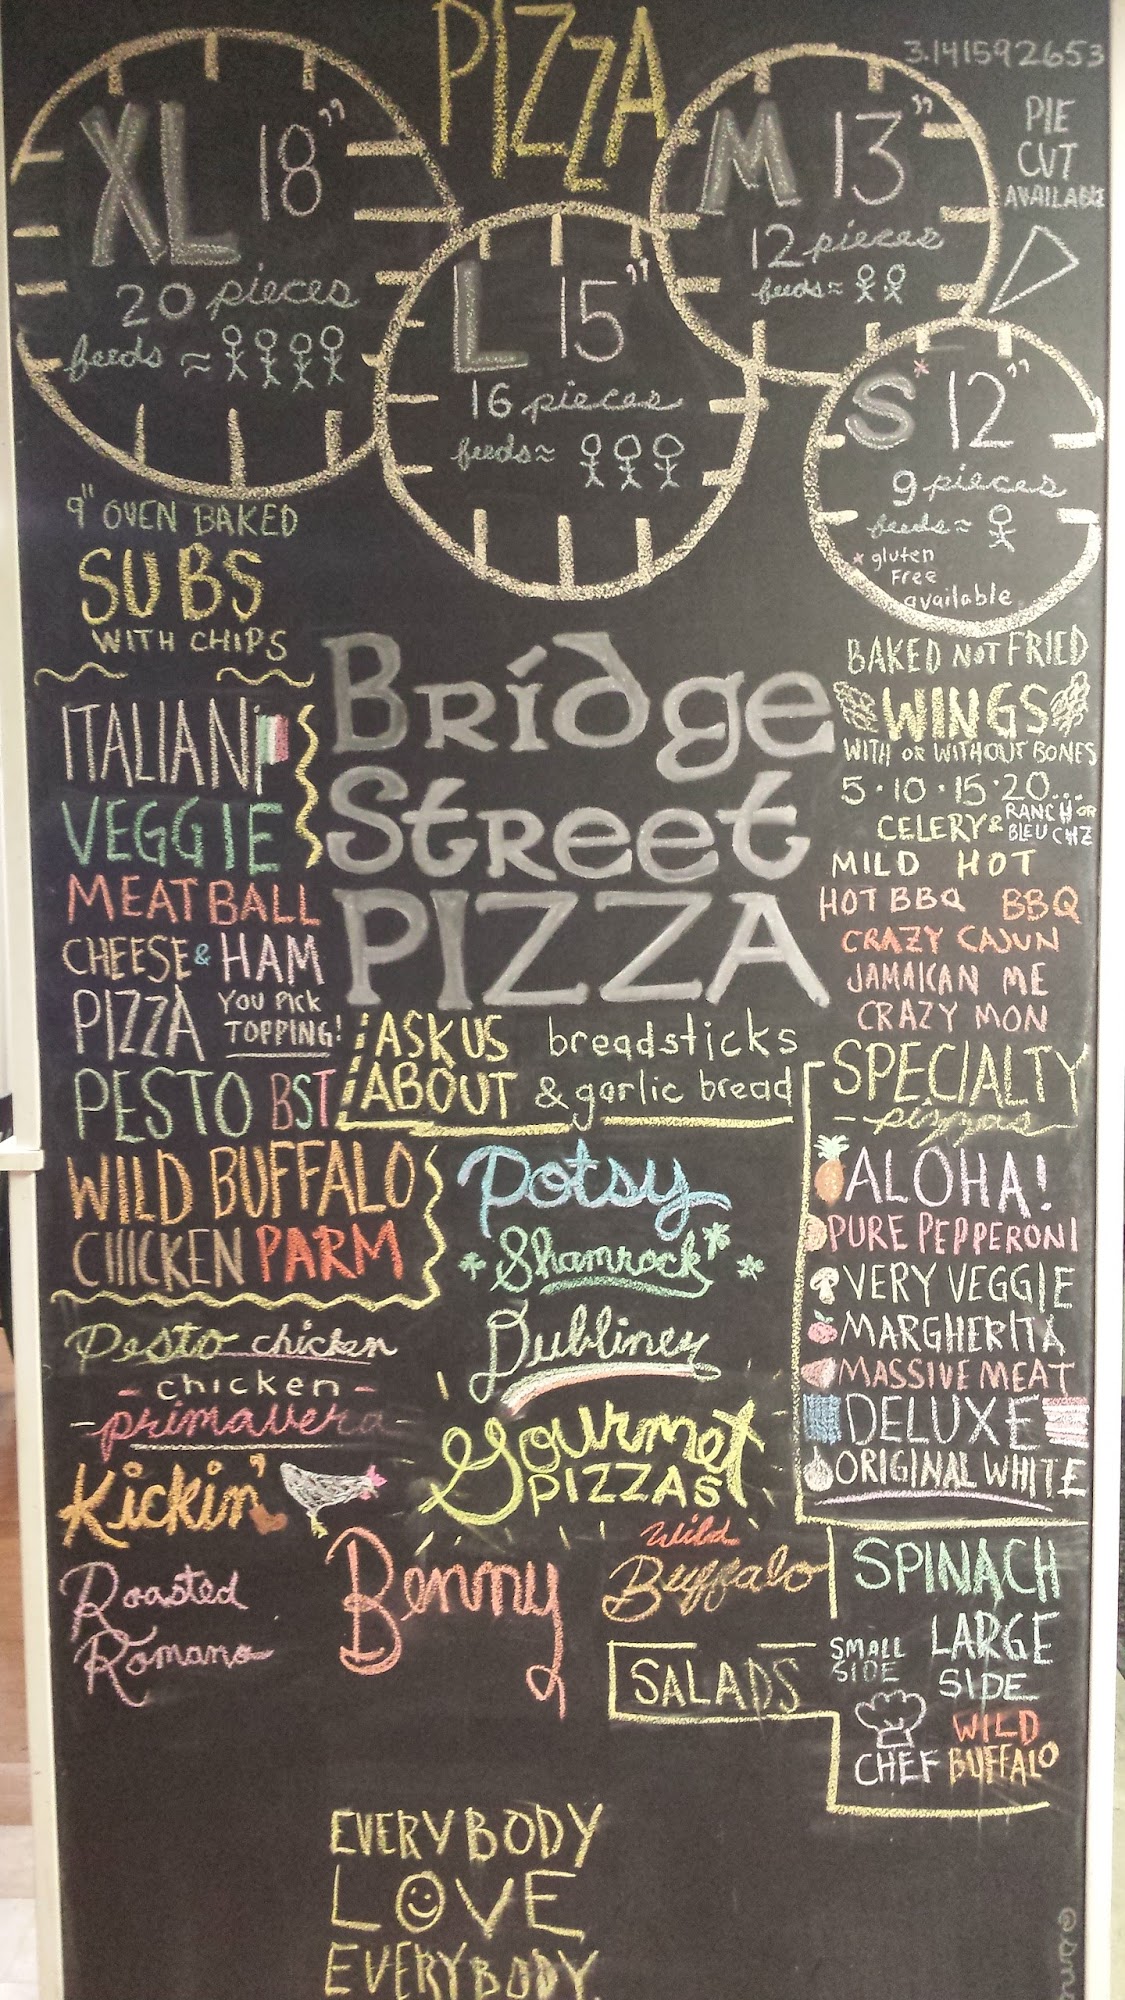 PIZZA
XL 18"
20 pieces
feeds ≈
L 15"
16 pieces
feeds ≈
M 13"
12 pieces
feeds ≈
3.141592653
PIE
CUT
AVAILABLE
S* 12"
9 pieces
feeds ≈
* gluten
free
available
9" OVEN BAKED
SUBS
WITH CHIPS
ITALIAN
VEGGIE
MEATBALL
CHEESE & HAM
PIZZA YOU PICK
TOPPING!
PESTO BST
WILD BUFFALO
CHICKEN PARM
Bridge
Street
PIZZA
ASK US
ABOUT
breadsticks
& garlic bread
BAKED NOT FRIED
WINGS
WITH OR WITHOUT BONES
5·10·15·20...
CELERY & RANCH OR
BLEU CHZ
MILD HOT
HOT BBQ BBQ
CRAZY CAJUN
JAMAICAN ME
CRAZY MON
SPECIALTY
pizzas
ALOHA!
PURE PEPPERONI
VERY VEGGIE
MARGHERITA
MASSIVE MEAT
DELUXE
ORIGINAL WHITE
Potsy
Shamrock
Dubliner
Gourmet
PIZZAS
Pesto chicken
chicken
primavera
Kickin'
Roasted
Romano
Benny
Wild
Buffalo
SALADS
SPINACH
SMALL
SIDE
LARGE
SIDE
CHEF
WILD
BUFFALO
EVERYBODY
LOVE
EVERYBODY.